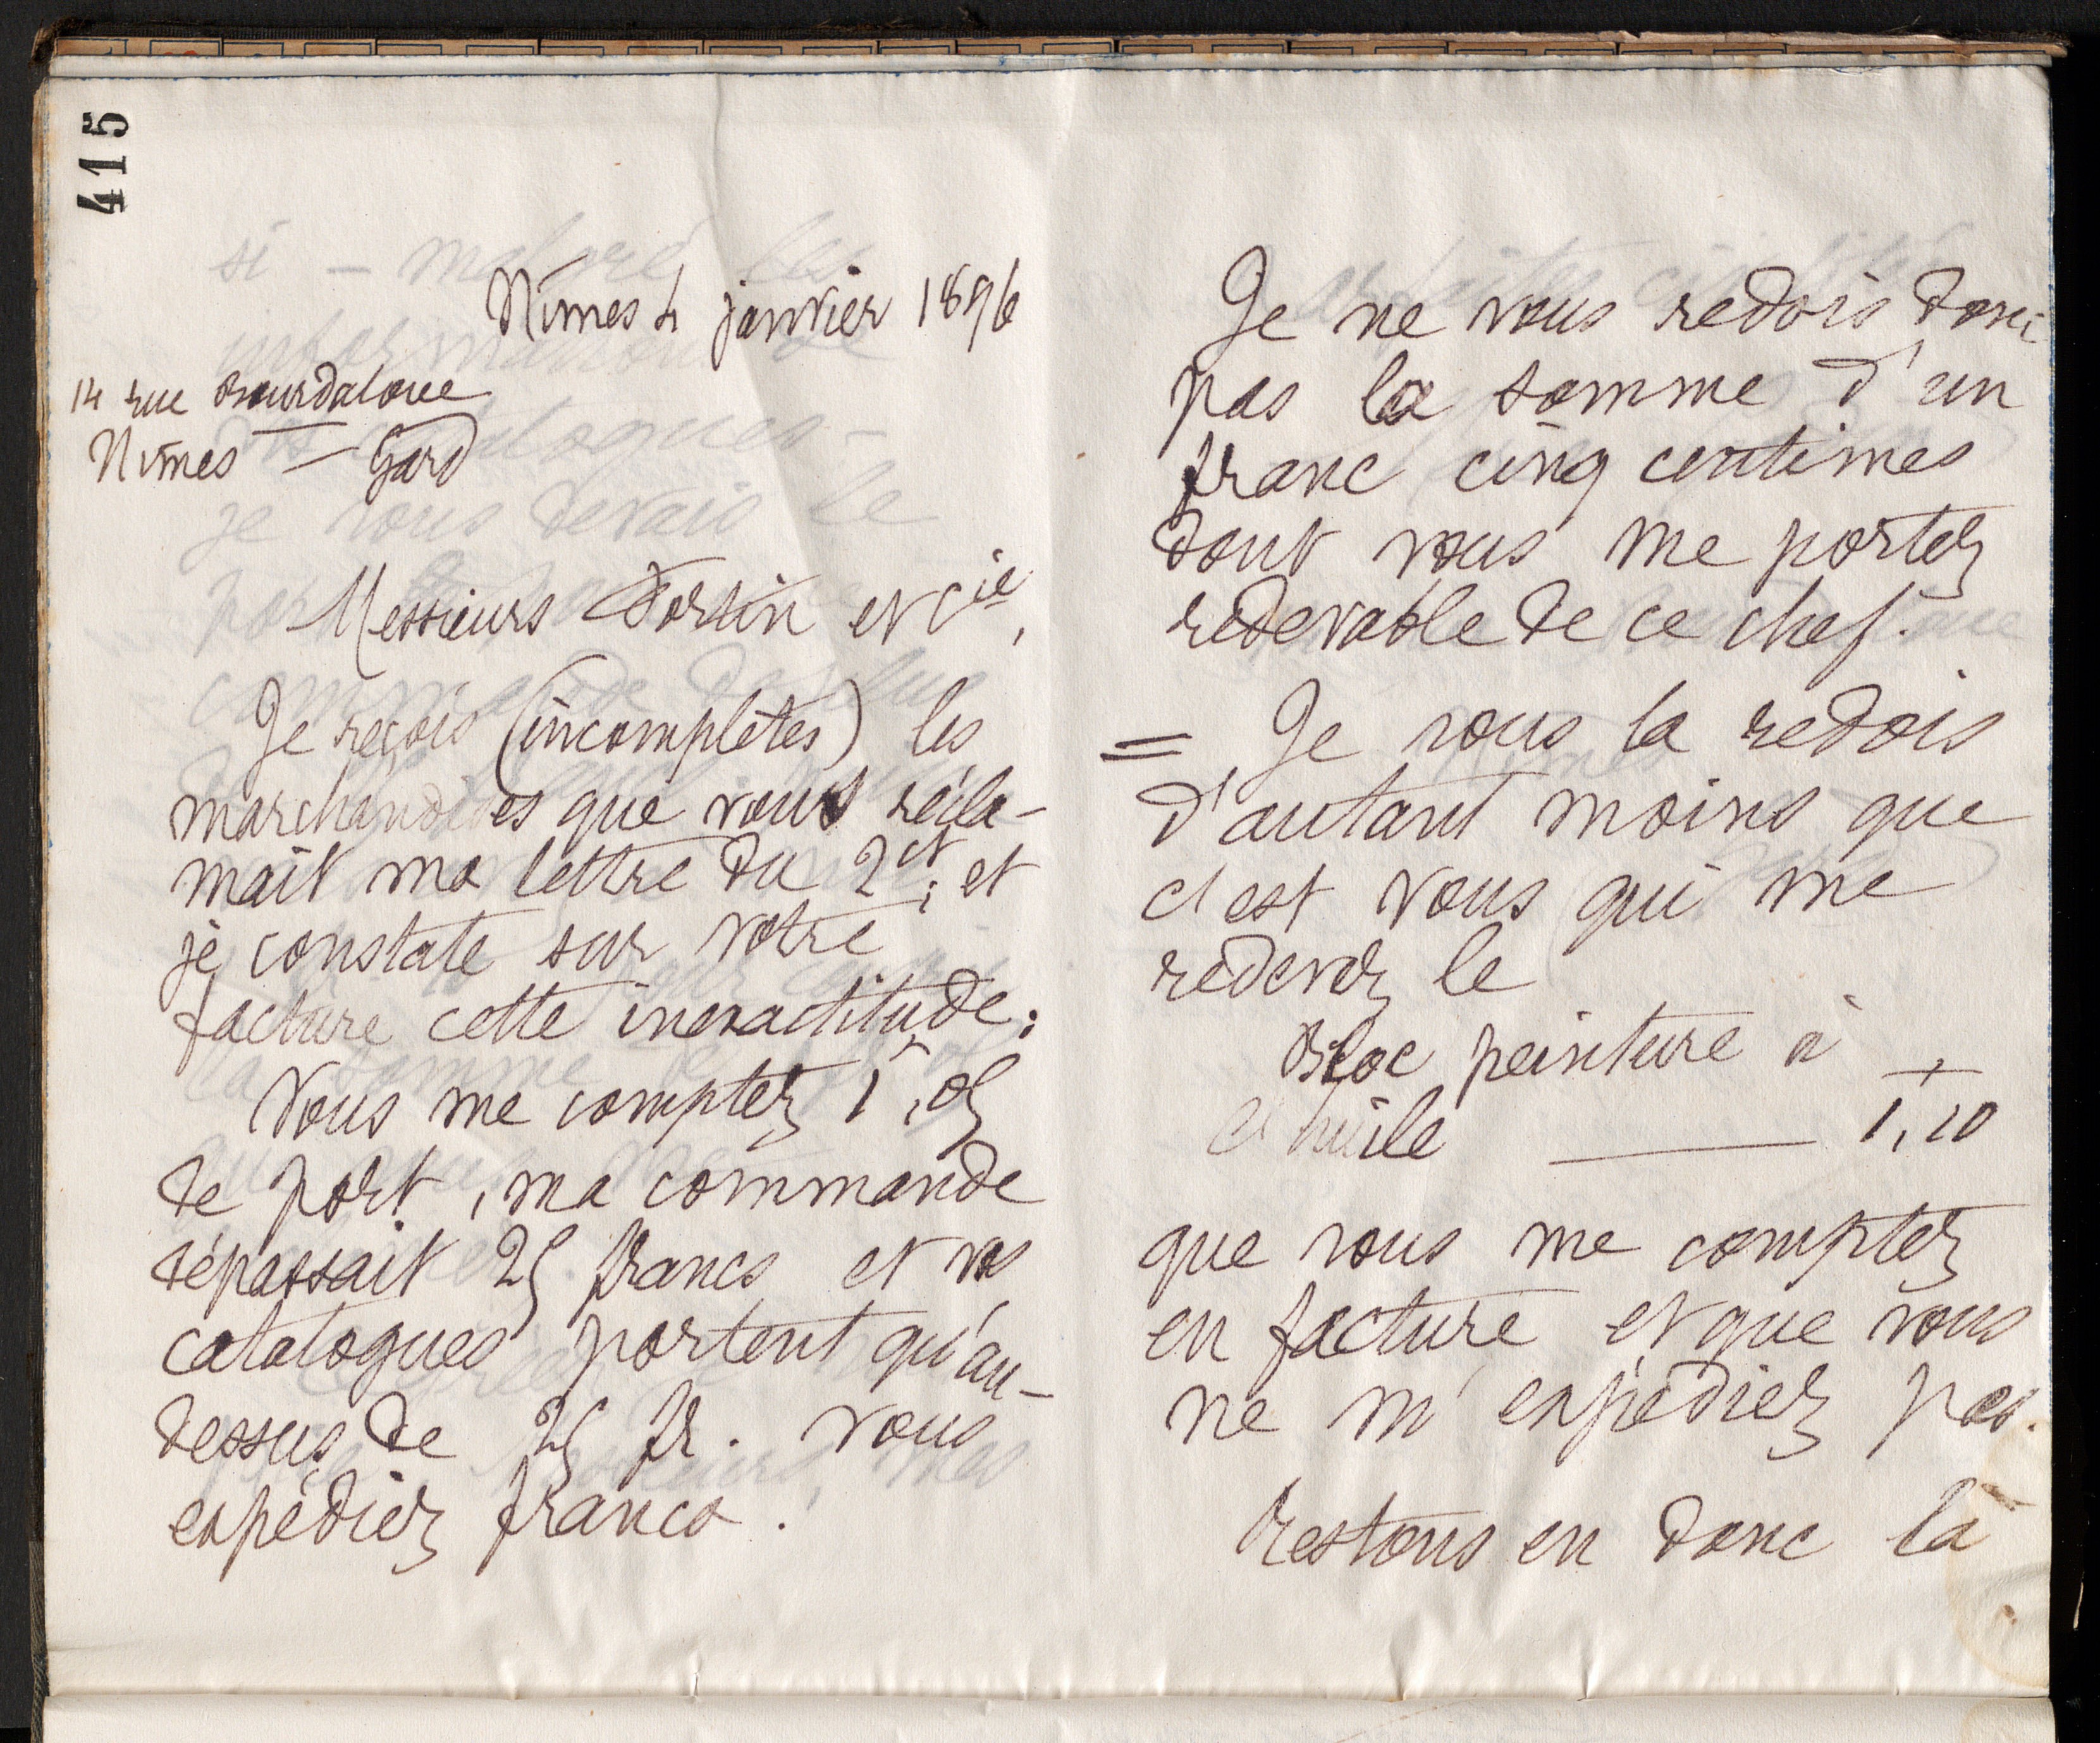 415
Nîmes 4 janvier 1896
14 rue Bourdaloue
Nîmes — Gard
Messieurs Fortin et Cie,
Je reçois (incomplètes) les
marchandises que vous récla-
mait ma lettre du 2 ct; et
je constate sur votre
facture cette inexactitude:
Vous me comptez 1,05
de port, ma commande
dépassait 25 francs et vos
catalogues portent qu'au-
dessus de 25 fr. vous
expédiez franco.
Je ne vous redois donc
pas la somme d'un
franc cinq centimes
dont vous me portez
redevable de ce chef.
= Je vous la redois
d'autant moins que
c'est vous qui me
redevez le
Bloc peinture à
l'huile — 1,10
que vous me comptez
en facture et que vous
ne m'expédiez pas.
Restons en donc là